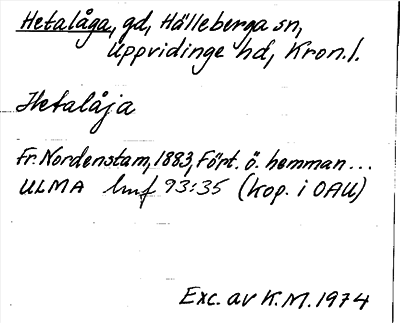 Hetalåga, gd, Hälleberga sn,
Uppvidinge hd, Kron.l.
Hetalåja
Fr. Nordenstam, 1883, Fört. ö. hemman...
ULMA hmf 93:35 (kop. i OAU)
Exc. av K.M. 1974